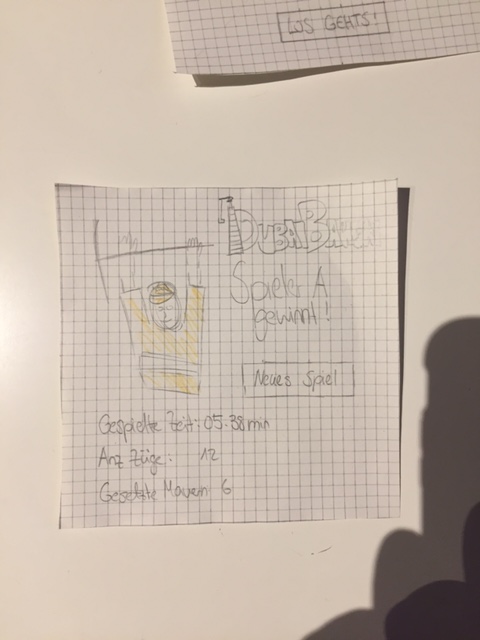 LOS GEHTS!
Spieler A
gewinnt!
Neues Spiel
Gespielte Zeit: 05:38min
Anz Züge: 12
Gesetzte Mauern 6